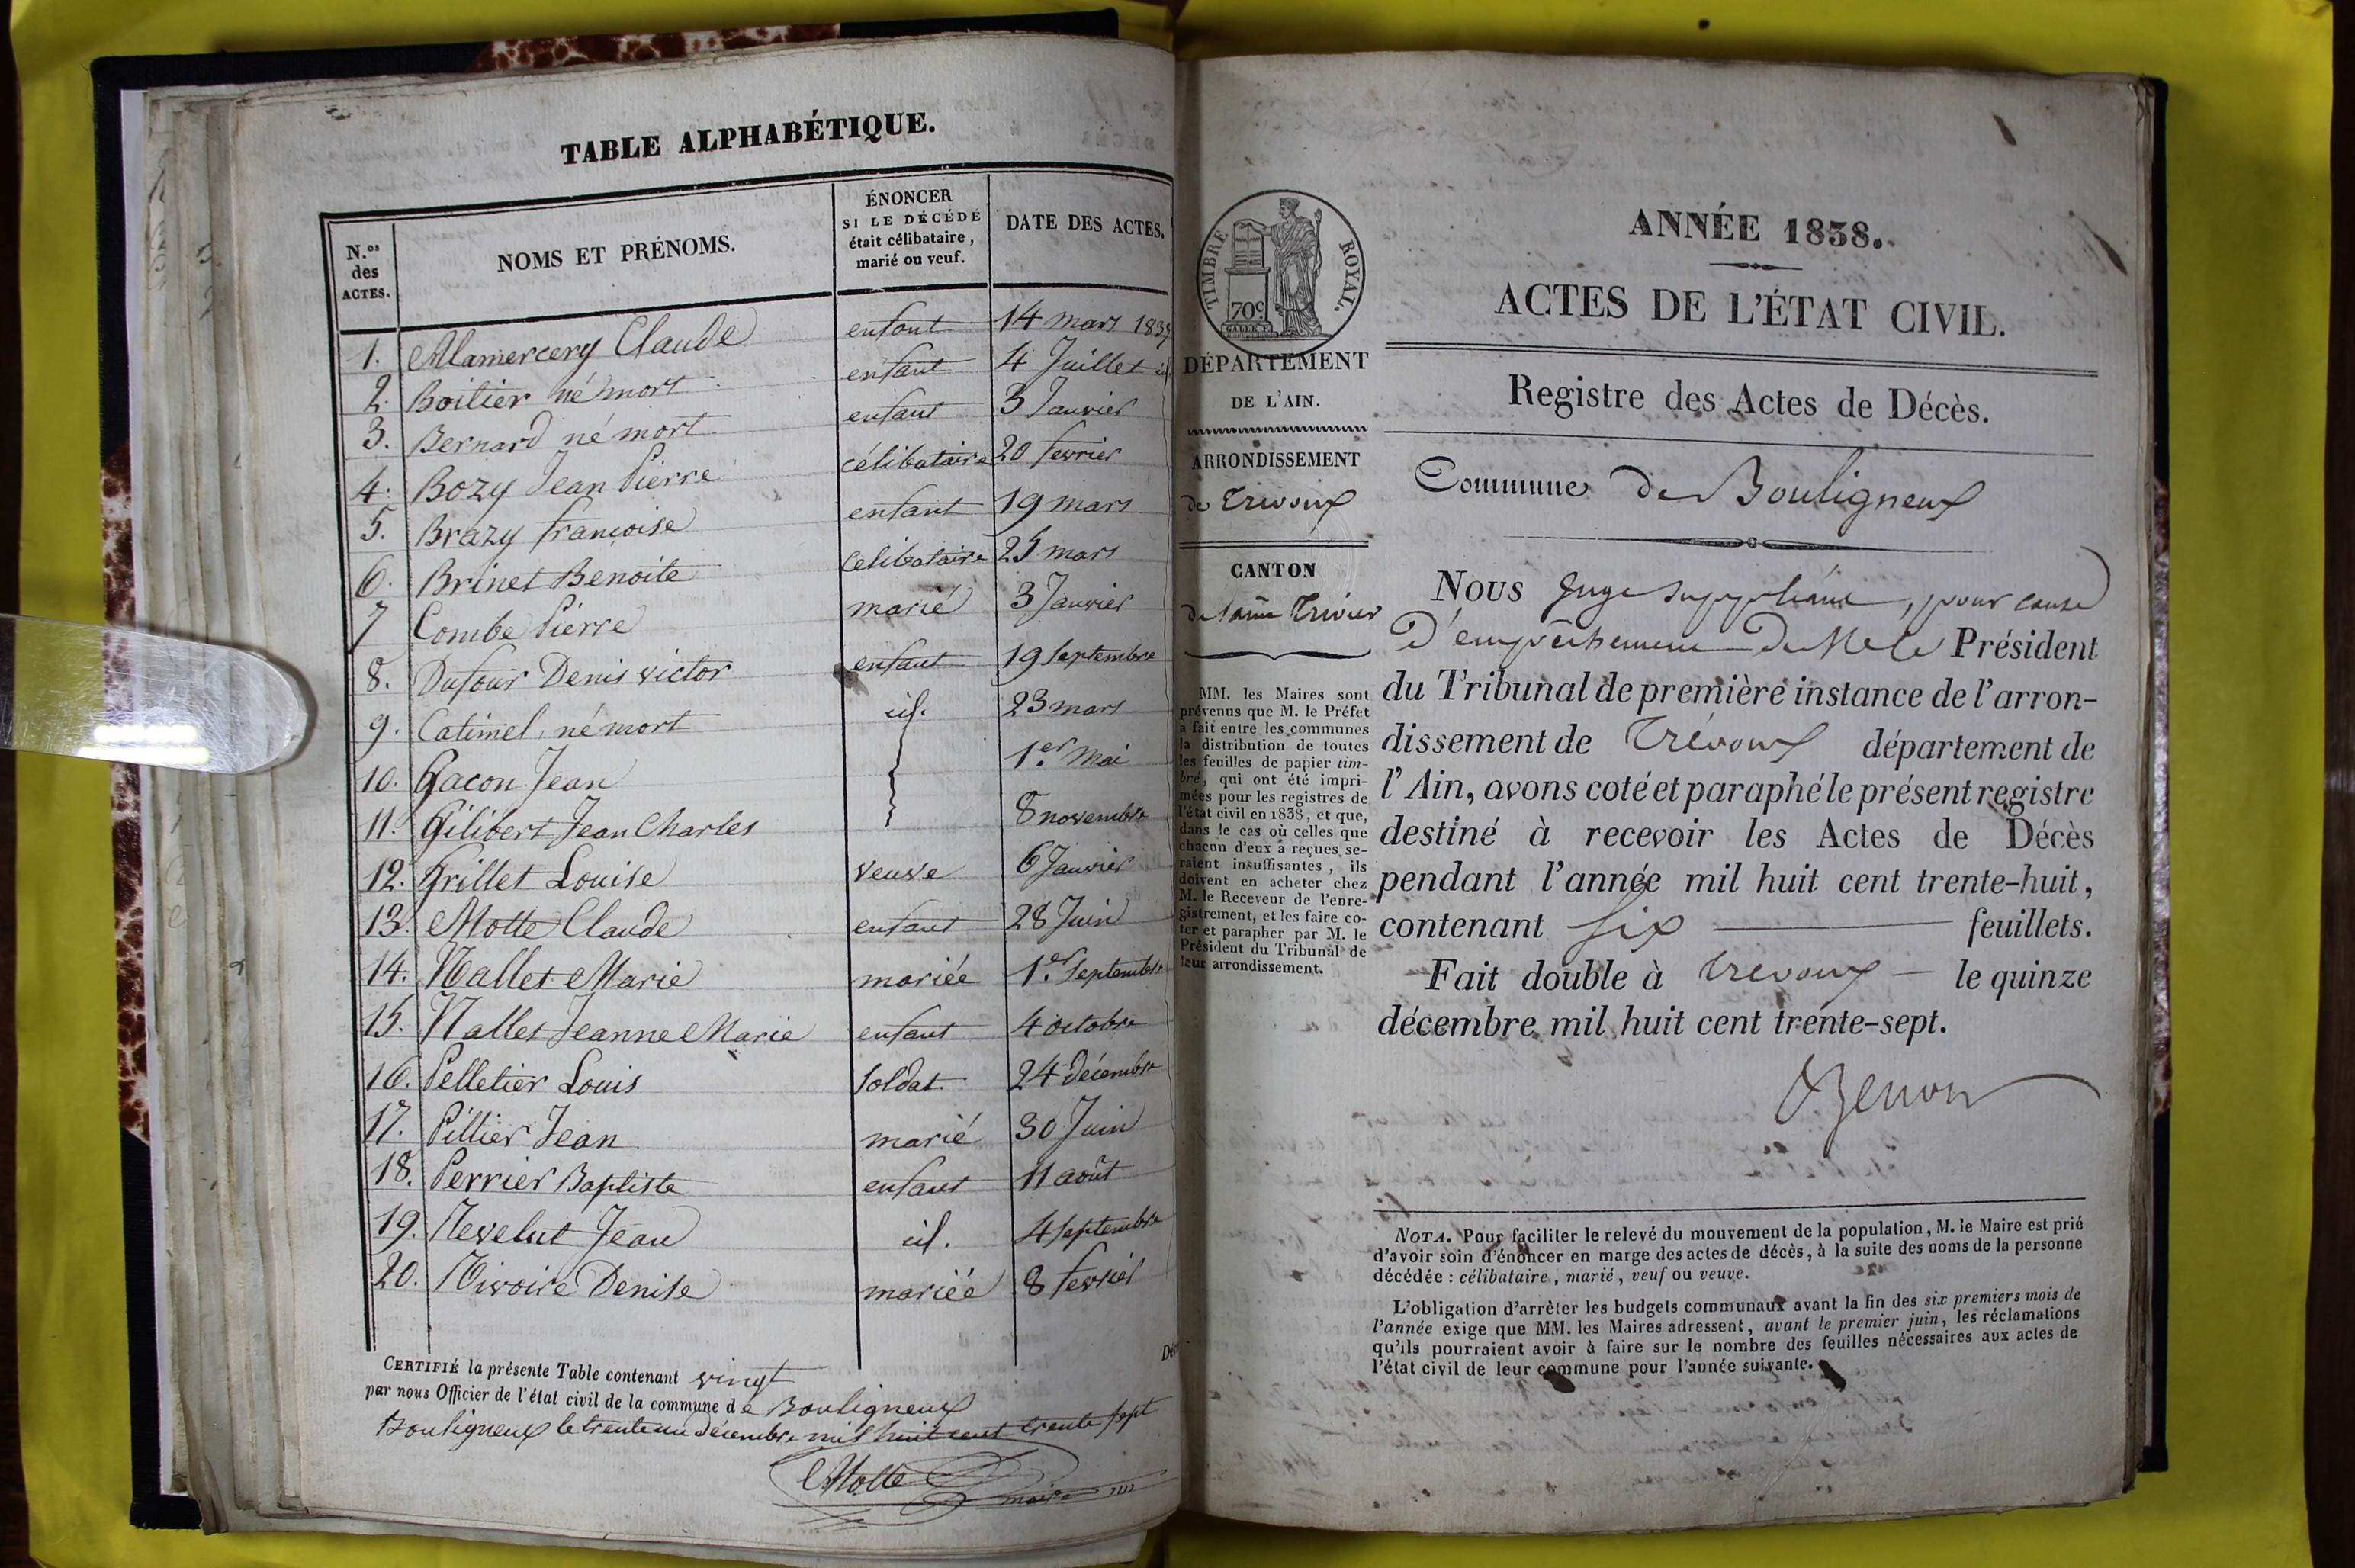 TABLE ALPHABÉTIQUE.
N.os des ACTES.
NOMS ET PRÉNOMS.
ÉNONCER SI LE DÉCÉDÉ était célibataire, marié ou veuf.
DATE DES ACTES.
1. Alamercery Claude enfant 14 mars 1837
2. Boitier né mort enfant 4 Juillet id
3. Bernard né mort enfant 3 Janvier
4. Bozy Jean Pierre célibataire 20 fevrier
5. Brazy françoise enfant 19 mars
6. Brinet Benoite celibataire 25 mars
7 Combe Pierre marié 3 Janvier
8. Dufour Denis victor enfant 19 Septembre
9. Catimel né mort id. 23 mars
10. Gacon Jean 1.er Mai
11. Gilibert Jean Charles 8 novembre
12. Grillet Louise veuve 6 Janvier
13. Motte Claude enfant 28 Juin
14. Nallet Marie mariée 1.er Septembre
15. Nallet Jeanne Marie enfant 4 octobre
16. Pelletier Louis soldat 24 décembre
17. Pillier Jean marié 30 Juin
18. Perrier Baptiste enfant 11 août
19. Revelut Jean id. 4 Septembre
20. Rivoire Denise mariée 8 fevrier
CERTIFIÉ la présente Table contenant vingt
par nous Officier de l'état civil de la commune de Bouligneux
Bouligneux le trente un décembre mil huit cent trente sept
Motte maire
TIMBRE ROYAL.
70c
DÉPARTEMENT
DE L'AIN.
ARRONDISSEMENT
de Trévoux
CANTON
de Saint Trivier
MM. les Maires sont
prévenus que M. le Préfet
a fait entre les communes
la distribution de toutes
les feuilles de papier tim-
bré, qui ont été impri-
mées pour les registres de
l'état civil en 1838, et que,
dans le cas où celles que
chacun d'eux a reçues se-
raient insuffisantes, ils
doivent en acheter chez
M. le Receveur de l'enre-
gistrement, et les faire co-
ter et parapher par M. le
Président du Tribunal de
leur arrondissement.
ANNÉE 1838.
ACTES DE L'ÉTAT CIVIL.
Registre des Actes de Décès.
Commune de Bouligneux
Nous Juge Suppléant, pour cause
d'empêchement de M. le Président
du Tribunal de première instance de l'arron-
dissement de Trévoux département de
l'Ain, avons coté et paraphé le présent registre
destiné à recevoir les Actes de Décès
pendant l'année mil huit cent trente-huit,
contenant Six feuillets.
Fait double à Trévoux le quinze
décembre mil huit cent trente-sept.
NOTA. Pour faciliter le relevé du mouvement de la population, M. le Maire est prié
d'avoir soin d'énoncer en marge des actes de décès, à la suite des noms de la personne
décédée : célibataire, marié, veuf ou veuve.
L'obligation d'arrêter les budgets communaux avant la fin des six premiers mois de
l'année exige que MM. les Maires adressent, avant le premier juin, les réclamations
qu'ils pourraient avoir à faire sur le nombre des feuilles nécessaires aux actes de
l'état civil de leur commune pour l'année suivante.